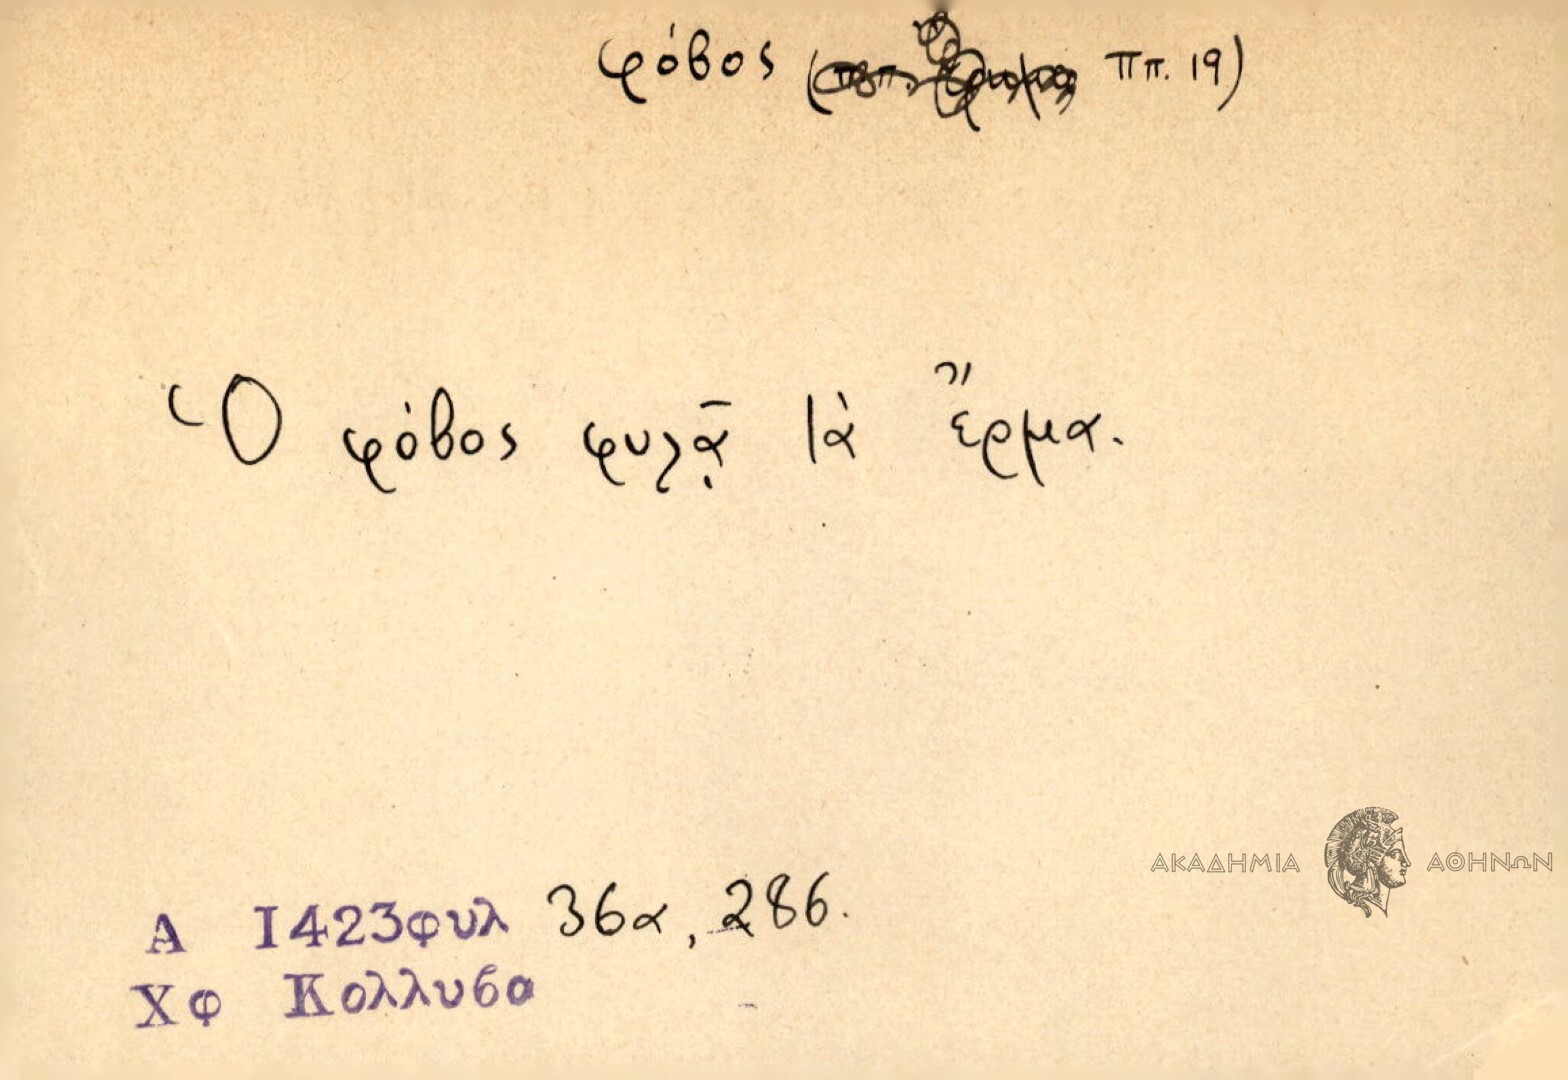 φόβος ( Ππ. 19)
Ὁ φόβος φυλᾷ τὰ ἔρμα.
ΑΚΑΔΗΜΙΑ ΑΘΗΝΩΝ
Α 1423φυλ 36α, 286.
Χφ Κολλυβα